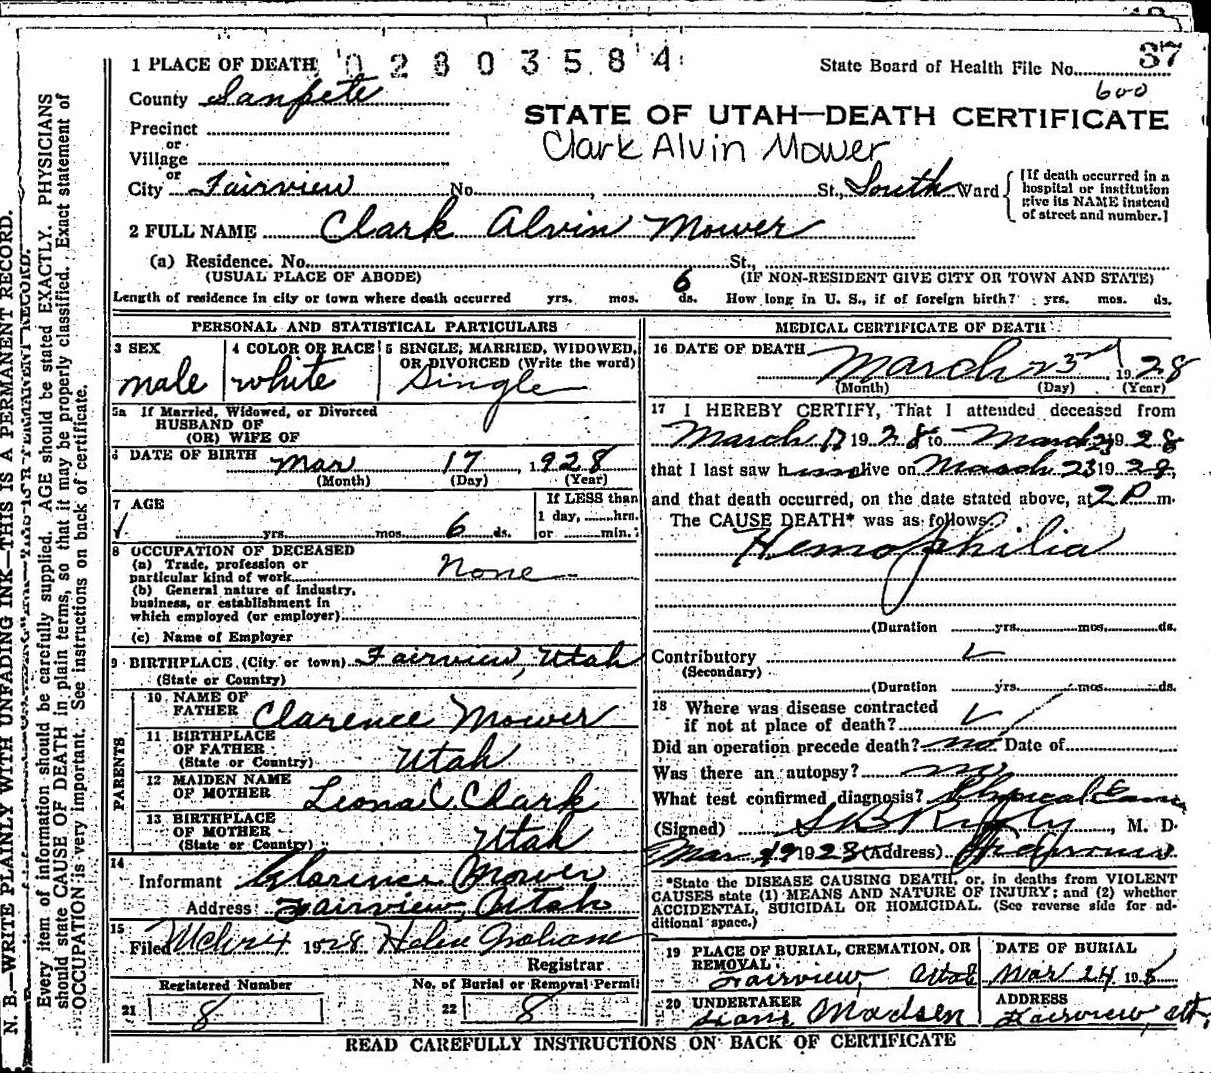 37
1 PLACE OF DEATH 02803584
State Board of Health File No.
600
County Sanpete
STATE OF UTAH—DEATH CERTIFICATE
Precinct
or
Clark Alvin Mower
Village
or
City Fairview No. , St., South Ward
[If death occurred in a
hospital or institution
give its NAME instead
of street and number.]
2 FULL NAME Clark Alvin Mower
(a) Residence. No. St.,
(USUAL PLACE OF ABODE) (IF NON-RESIDENT GIVE CITY OR TOWN AND STATE)
Length of residence in city or town where death occurred yrs. mos. 6 ds. How long in U. S., if of foreign birth? yrs. mos. ds.
PERSONAL AND STATISTICAL PARTICULARS
3 SEX
male
4 COLOR OR RACE
white
5 SINGLE, MARRIED, WIDOWED,
OR DIVORCED (Write the word)
Single
5a If Married, Widowed, or Divorced
HUSBAND OF
(OR) WIFE OF
6 DATE OF BIRTH Mar 17, 1928
(Month) (Day) (Year)
7 AGE
yrs. mos. 6 ds.
If LESS than
1 day, hrs.
or min.
8 OCCUPATION OF DECEASED
(a) Trade, profession or
particular kind of work None
(b) General nature of industry,
business, or establishment in
which employed (or employer)
(c) Name of Employer
9 BIRTHPLACE (City or town) Fairview, Utah
(State or Country)
PARENTS
10 NAME OF
FATHER Clarence Mower
11 BIRTHPLACE
OF FATHER Utah
(State or Country)
12 MAIDEN NAME
OF MOTHER Leona C Clark
13 BIRTHPLACE
OF MOTHER Utah
(State or Country)
14
Informant Clarence Mower
Address Fairview, Utah
15
Filed Mch 24 1928 Helen Graham
Registrar
Registered Number No. of Burial or Removal Permit
21 8 22 8
MEDICAL CERTIFICATE OF DEATH
16 DATE OF DEATH March 23rd, 1928
(Month) (Day) (Year)
17 I HEREBY CERTIFY, That I attended deceased from
March 17 1928 to March 23 1928
that I last saw him alive on March 23 1928,
and that death occurred, on the date stated above, at 2 P m.
The CAUSE DEATH* was as follows:
Hemophilia
(Duration yrs. mos. ds.
Contributory
(Secondary)
(Duration yrs. mos. ds.
18 Where was disease contracted
if not at place of death?
Did an operation precede death? no Date of
Was there an autopsy? no
What test confirmed diagnosis? Physical Exam
(Signed) S B Rigby, M. D.
Mar 1928 (Address)
*State the DISEASE CAUSING DEATH, or, in deaths from VIOLENT
CAUSES state (1) MEANS AND NATURE OF INJURY; and (2) whether
ACCIDENTAL, SUICIDAL OR HOMICIDAL. (See reverse side for ad-
ditional space.)
19 PLACE OF BURIAL, CREMATION, OR
REMOVAL
Fairview, Utah
DATE OF BURIAL
Mar 24 1928
20 UNDERTAKER
Madsen
ADDRESS
Fairview, Ut.
READ CAREFULLY INSTRUCTIONS ON BACK OF CERTIFICATE
N. B.—WRITE PLAINLY WITH UNFADING INK—THIS IS A PERMANENT RECORD.
Every item of information should be carefully supplied. AGE should be stated EXACTLY. PHYSICIANS
should state CAUSE OF DEATH in plain terms, so that it may be properly classified. Exact statement of
OCCUPATION is very important. See instructions on back of certificate.